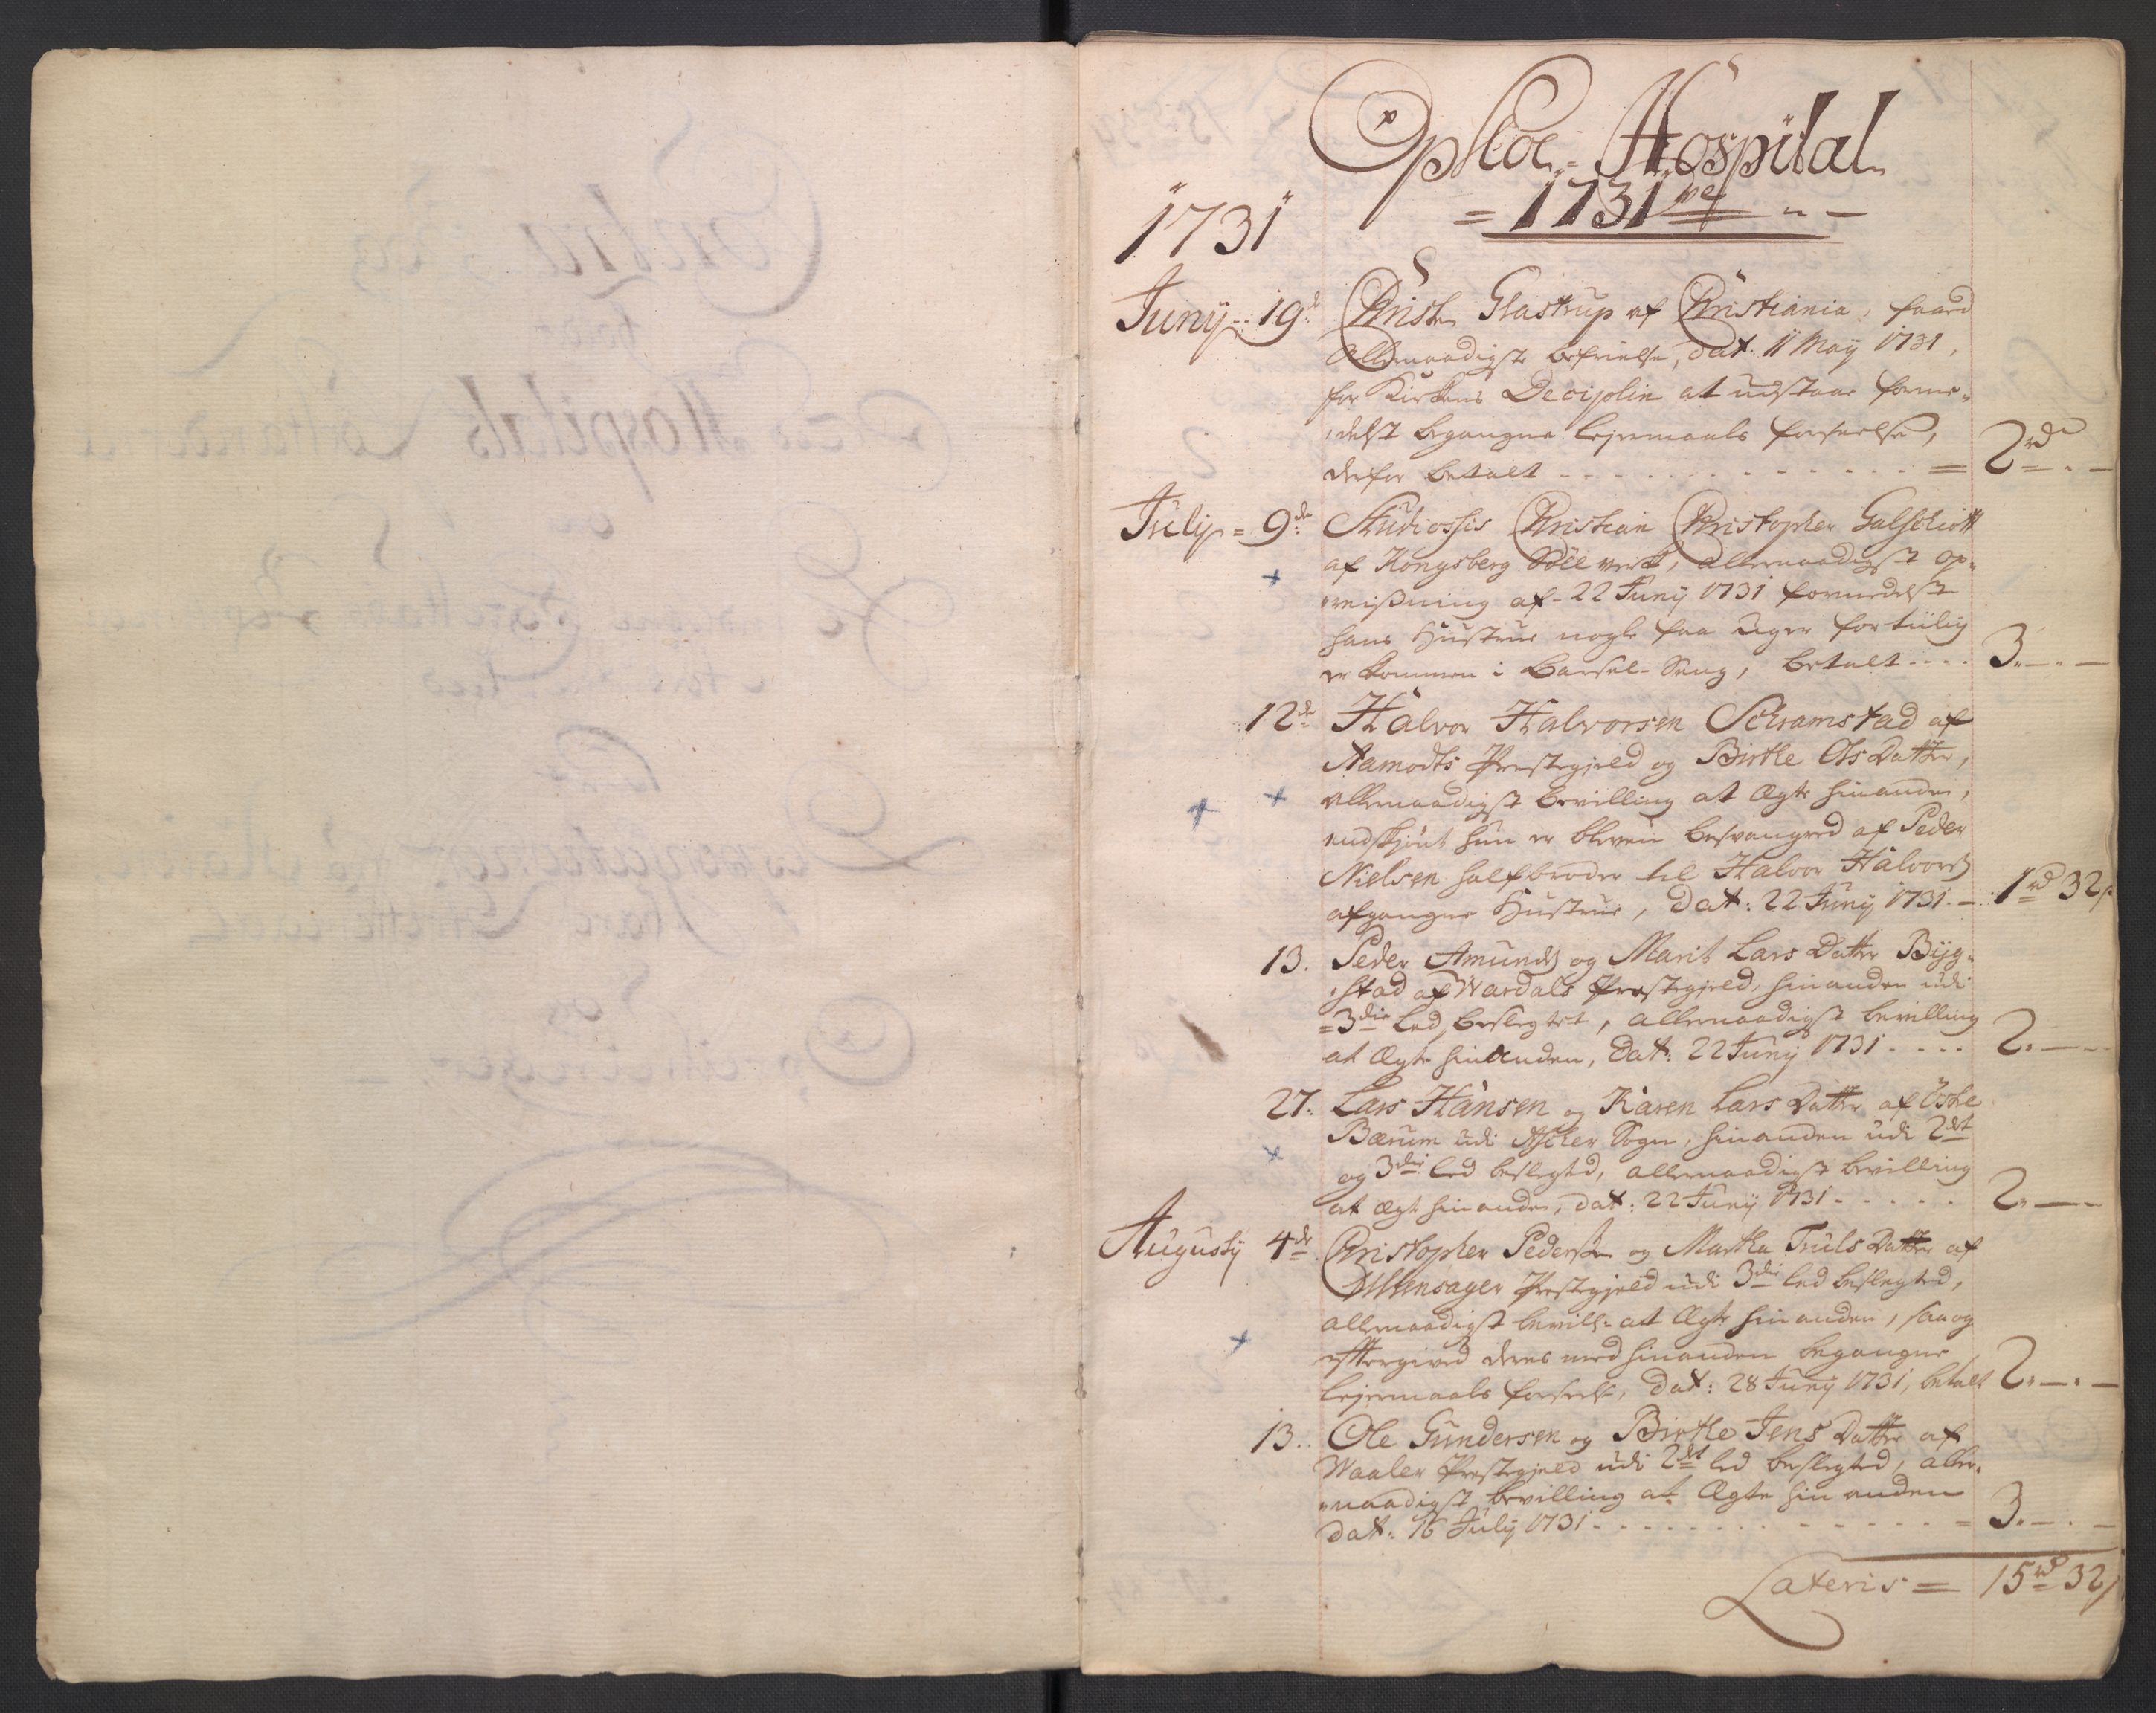 Opsloe Hospital
1731
= 1731 = 
Junÿ 19d Christen Glastrup af Christiania, faaed
Allernaadigste befrielse, dat: 11 Maÿ 1731,
for Kirkens Deciplin at udstaae forme-
delst begangne Lejermaals forseelse,
derfor betalt - - - = 2rd - -
Julÿ = 9de Studiosus Christian Christopher Galschiøtt
af Kongsberg Sølverk, allernaadigst op-
reisning af 22 Junÿ 1731 formedelst
hans Hustrue nogle faa Uger for tiilig
er kommen i Barsel-Seng, betalt - - - 3. - -
12de Halvor Halvorsen Schramstad af
Aamodts Præstegjeld og Birthe Ols Datter,
allernaadigst bevilling at Ægte hinanden,
endskjønt hun er bleven besvangred af Peder
Nielsen halfbroder til Halvor Halvors.
afgangne Hustrue, dat: 22 Junÿ 1731 - 1rd 32s
13. Peder Amunds. og Marit Lars Datter Bÿg-
stad af Wardals Præstegjeld, hinanden udi
3die Led beslegtet, allernaadigst bevilling
at Ægte hinanden, dat: 22 Junÿ 1731 - - - 2. - -
27. Lars Hansen og Karen Lars Datter af
Bærum udi Asker Sogn, hinanden udi 2det
og 3die Led beslegted, allernaadigst bevilling
at Ægt hinanden, dat: 22 Junÿ 1731 - - - 2. - -
Augustÿ 4de Christopher Pedersen og Martha Truls Datter af
Ullensager Præstegjeld udi 3die led beslegted,
allernaadigst bevill: at Ægte hinanden, saa og
eftergived deres med hinanden begangne
Lejermaals forseelse, dat: 28 Junÿ 1731, betalt 2. - -
13. Ole Gundersen og Birthe Jens Datter af
Waaler Præstegjeld udi 2det led beslegted, aller-
naadigst bevilling at Ægte hinanden
dat: 16 Julÿ 1731 - - - = 3. - -
Lateris = 15rd 32s